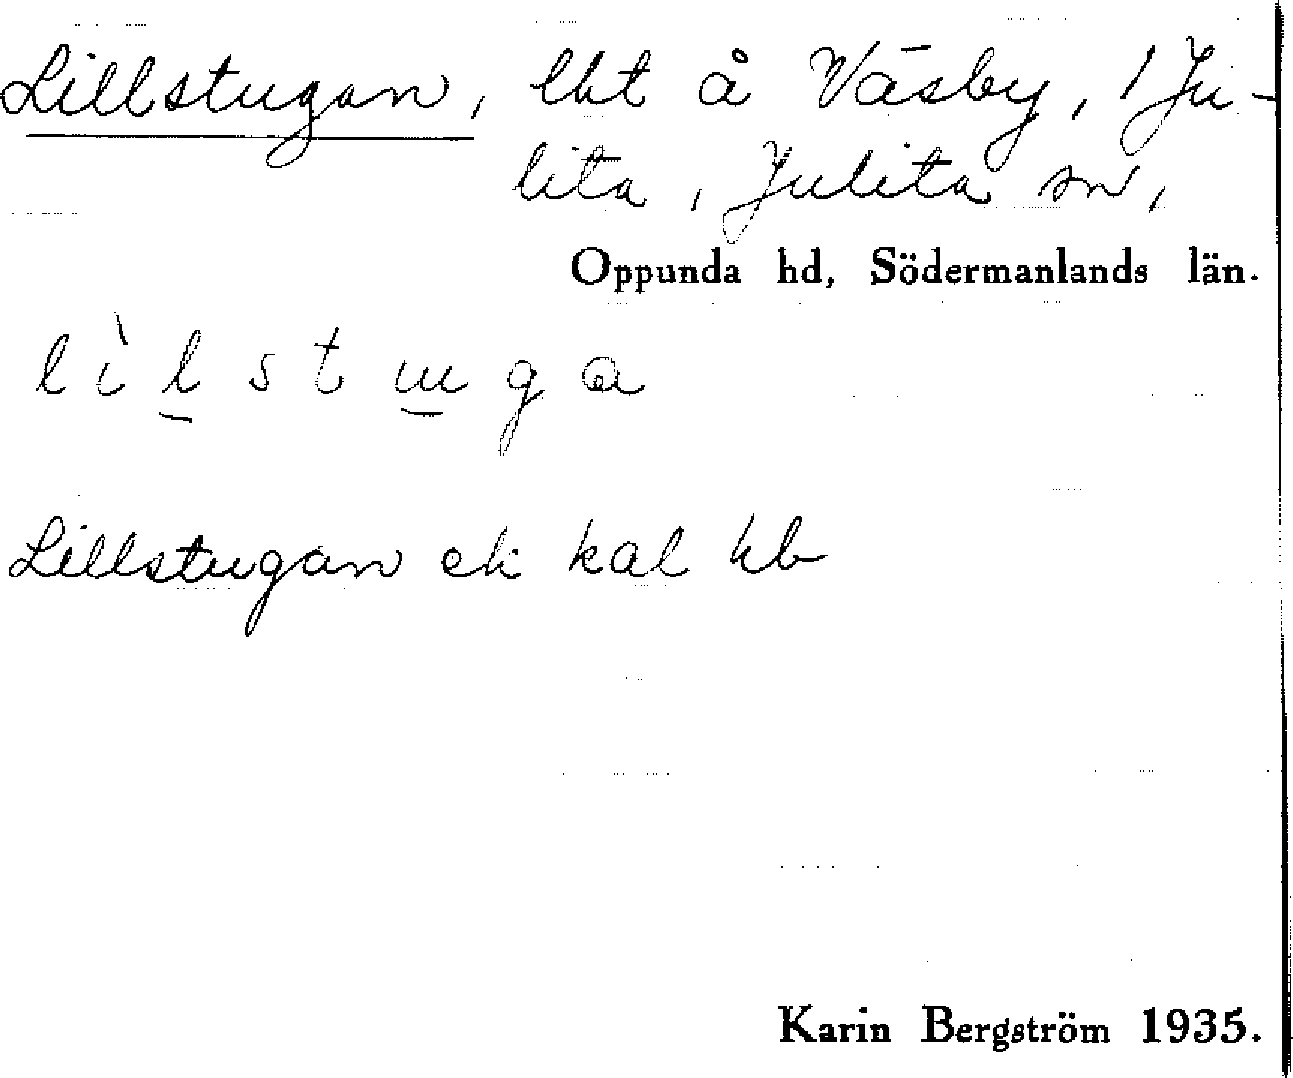 Lillstugan, lht å Väsby, 1 Ju-
lita, Julita sn,
Oppunda hd, Södermanlands län.
lìlstuga
Lillstugan ek kal hb
Karin Bergström 1935.